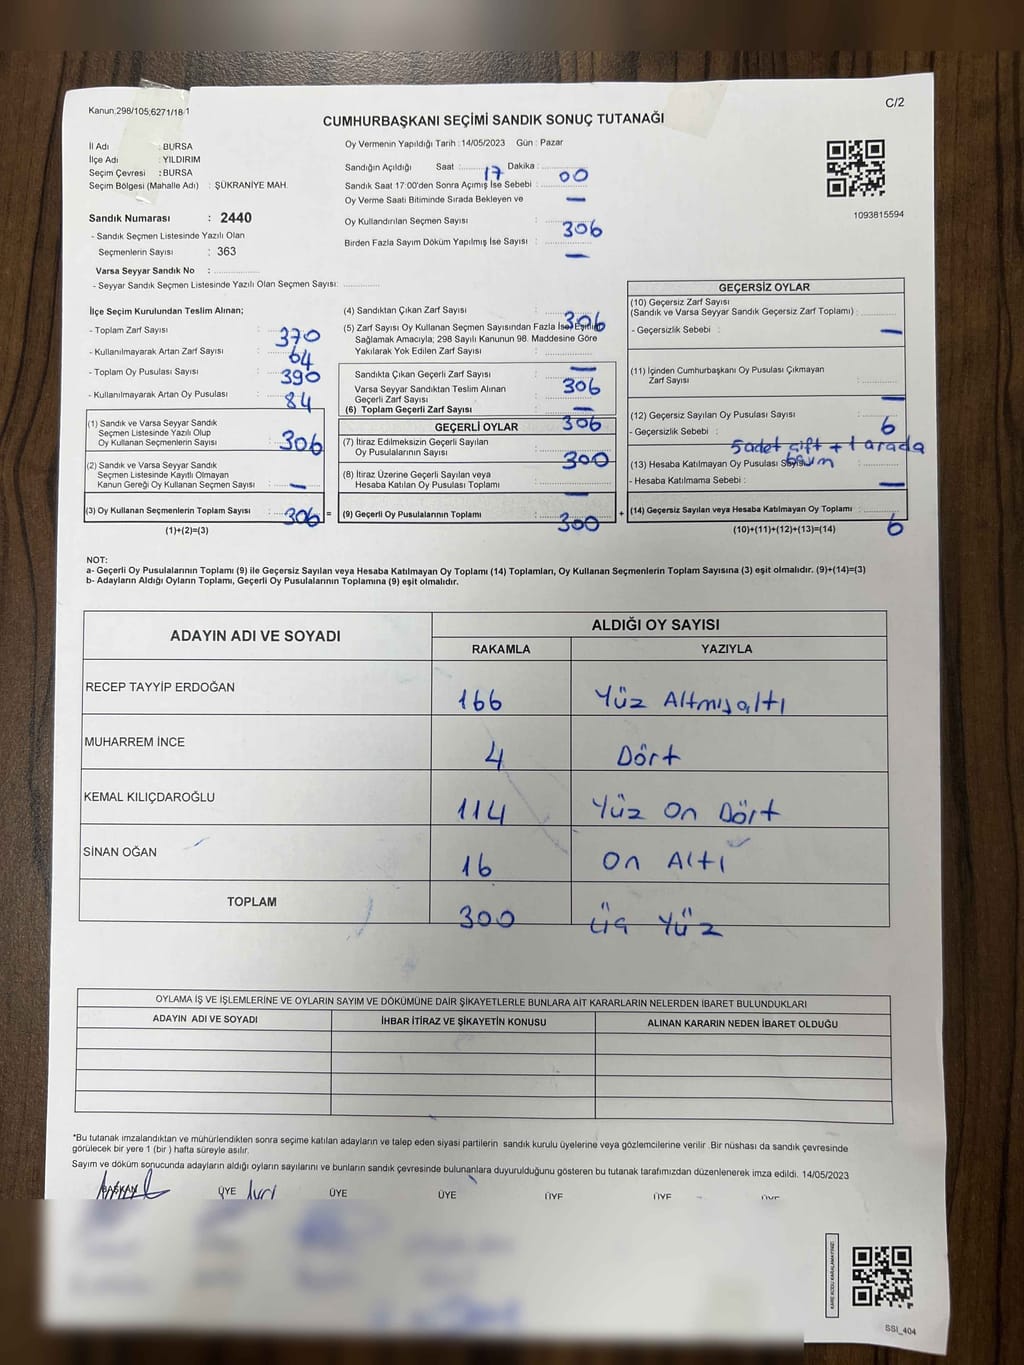 Kanun;298/105;6271/18/1
C/2
CUMHURBAŞKANI SEÇİMİ SANDIK SONUÇ TUTANAĞI
İl Adı : BURSA
İlçe Adı : YILDIRIM
Seçim Çevresi : BURSA
Seçim Bölgesi (Mahalle Adı) : ŞÜKRANİYE MAH.
Sandık Numarası : 2440
- Sandık Seçmen Listesinde Yazılı Olan
Seçmenlerin Sayısı : 363
Varsa Seyyar Sandık No :
- Seyyar Sandık Seçmen Listesinde Yazılı Olan Seçmen Sayısı:
Oy Vermenin Yapıldığı Tarih : 14/05/2023 Gün : Pazar
Sandığın Açıldığı Saat : 17 Dakika : 00
Sandık Saat 17:00'den Sonra Açımış İse Sebebi :
Oy Verme Saati Bitiminde Sırada Bekleyen ve —
Oy Kullandırılan Seçmen Sayısı : 306
Birden Fazla Sayım Döküm Yapılmış İse Sayısı : —
1093815594
İlçe Seçim Kurulundan Teslim Alınan;
- Toplam Zarf Sayısı : 370
- Kullanılmayarak Artan Zarf Sayısı : 64
- Toplam Oy Pusulası Sayısı : 390
- Kullanılmayarak Artan Oy Pusulası : 84
(1) Sandık ve Varsa Seyyar Sandık
Seçmen Listesinde Yazılı Olup
Oy Kullanan Seçmenlerin Sayısı : 306
(2) Sandık ve Varsa Seyyar Sandık
Seçmen Listesinde Kayıtlı Olmayan
Kanun Gereği Oy Kullanan Seçmen Sayısı : —
(3) Oy Kullanan Seçmenlerin Toplam Sayısı : 306 =
(1)+(2)=(3)
(4) Sandıktan Çıkan Zarf Sayısı : 306
(5) Zarf Sayısı Oy Kullanan Seçmen Sayısından Fazla İse, Eşitliği
Sağlamak Amacıyla; 298 Sayılı Kanunun 98. Maddesine Göre
Yakılarak Yok Edilen Zarf Sayısı : —
Sandıkta Çıkan Geçerli Zarf Sayısı : 306
Varsa Seyyar Sandıktan Teslim Alınan
Geçerli Zarf Sayısı : —
(6) Toplam Geçerli Zarf Sayısı : 306
GEÇERLİ OYLAR
(7) İtiraz Edilmeksizin Geçerli Sayılan
Oy Pusulalarının Sayısı : 300
(8) İtiraz Üzerine Geçerli Sayılan veya
Hesaba Katılan Oy Pusulası Toplamı : —
(9) Geçerli Oy Pusulalarının Toplamı : 300 +
GEÇERSİZ OYLAR
(10) Geçersiz Zarf Sayısı
(Sandık ve Varsa Seyyar Sandık Geçersiz Zarf Toplamı) :
- Geçersizlik Sebebi : —
(11) İçinden Cumhurbaşkanı Oy Pusulası Çıkmayan
Zarf Sayısı : —
(12) Geçersiz Sayılan Oy Pusulası Sayısı : 6
- Geçersizlik Sebebi : 5 adet çift + 1 arada
(13) Hesaba Katılmayan Oy Pusulası Sayısı
- Hesaba Katılmama Sebebi : —
(14) Geçersiz Sayılan veya Hesaba Katılmayan Oy Toplamı : 6
(10)+(11)+(12)+(13)=(14)
NOT:
a- Geçerli Oy Pusulalarının Toplamı (9) ile Geçersiz Sayılan veya Hesaba Katılmayan Oy Toplamı (14) Toplamları, Oy Kullanan Seçmenlerin Toplam Sayısına (3) eşit olmalıdır. (9)+(14)=(3)
b- Adayların Aldığı Oyların Toplamı, Geçerli Oy Pusulalarının Toplamına (9) eşit olmalıdır.
ADAYIN ADI VE SOYADI ALDIĞI OY SAYISI
RAKAMLA YAZIYLA
RECEP TAYYİP ERDOĞAN 166 Yüz Altmışaltı
MUHARREM İNCE 4 Dört
KEMAL KILIÇDAROĞLU 114 Yüz On Dört
SİNAN OĞAN 16 On Altı
TOPLAM 300 Üç Yüz
OYLAMA İŞ VE İŞLEMLERİNE VE OYLARIN SAYIM VE DÖKÜMÜNE DAİR ŞİKAYETLERLE BUNLARA AİT KARARLARIN NELERDEN İBARET BULUNDUKLARI
ADAYIN ADI VE SOYADI İHBAR İTİRAZ VE ŞİKAYETİN KONUSU ALINAN KARARIN NEDEN İBARET OLDUĞU
*Bu tutanak imzalandıktan ve mühürlendikten sonra seçime katılan adayların ve talep eden siyasi partilerin sandık kurulu üyelerine veya gözlemcilerine verilir .Bir nüshası da sandık çevresinde
görülecek bir yere 1 (bir ) hafta süreyle asılır.
Sayım ve döküm sonucunda adayların aldığı oyların sayılarını ve bunların sandık çevresinde bulunanlara duyurulduğunu gösteren bu tutanak tarafımızdan düzenlenerek imza edildi. 14/05/2023
BAŞKAN ÜYE ÜYE ÜYE ÜYE ÜYE ÜYE
SSİ_404